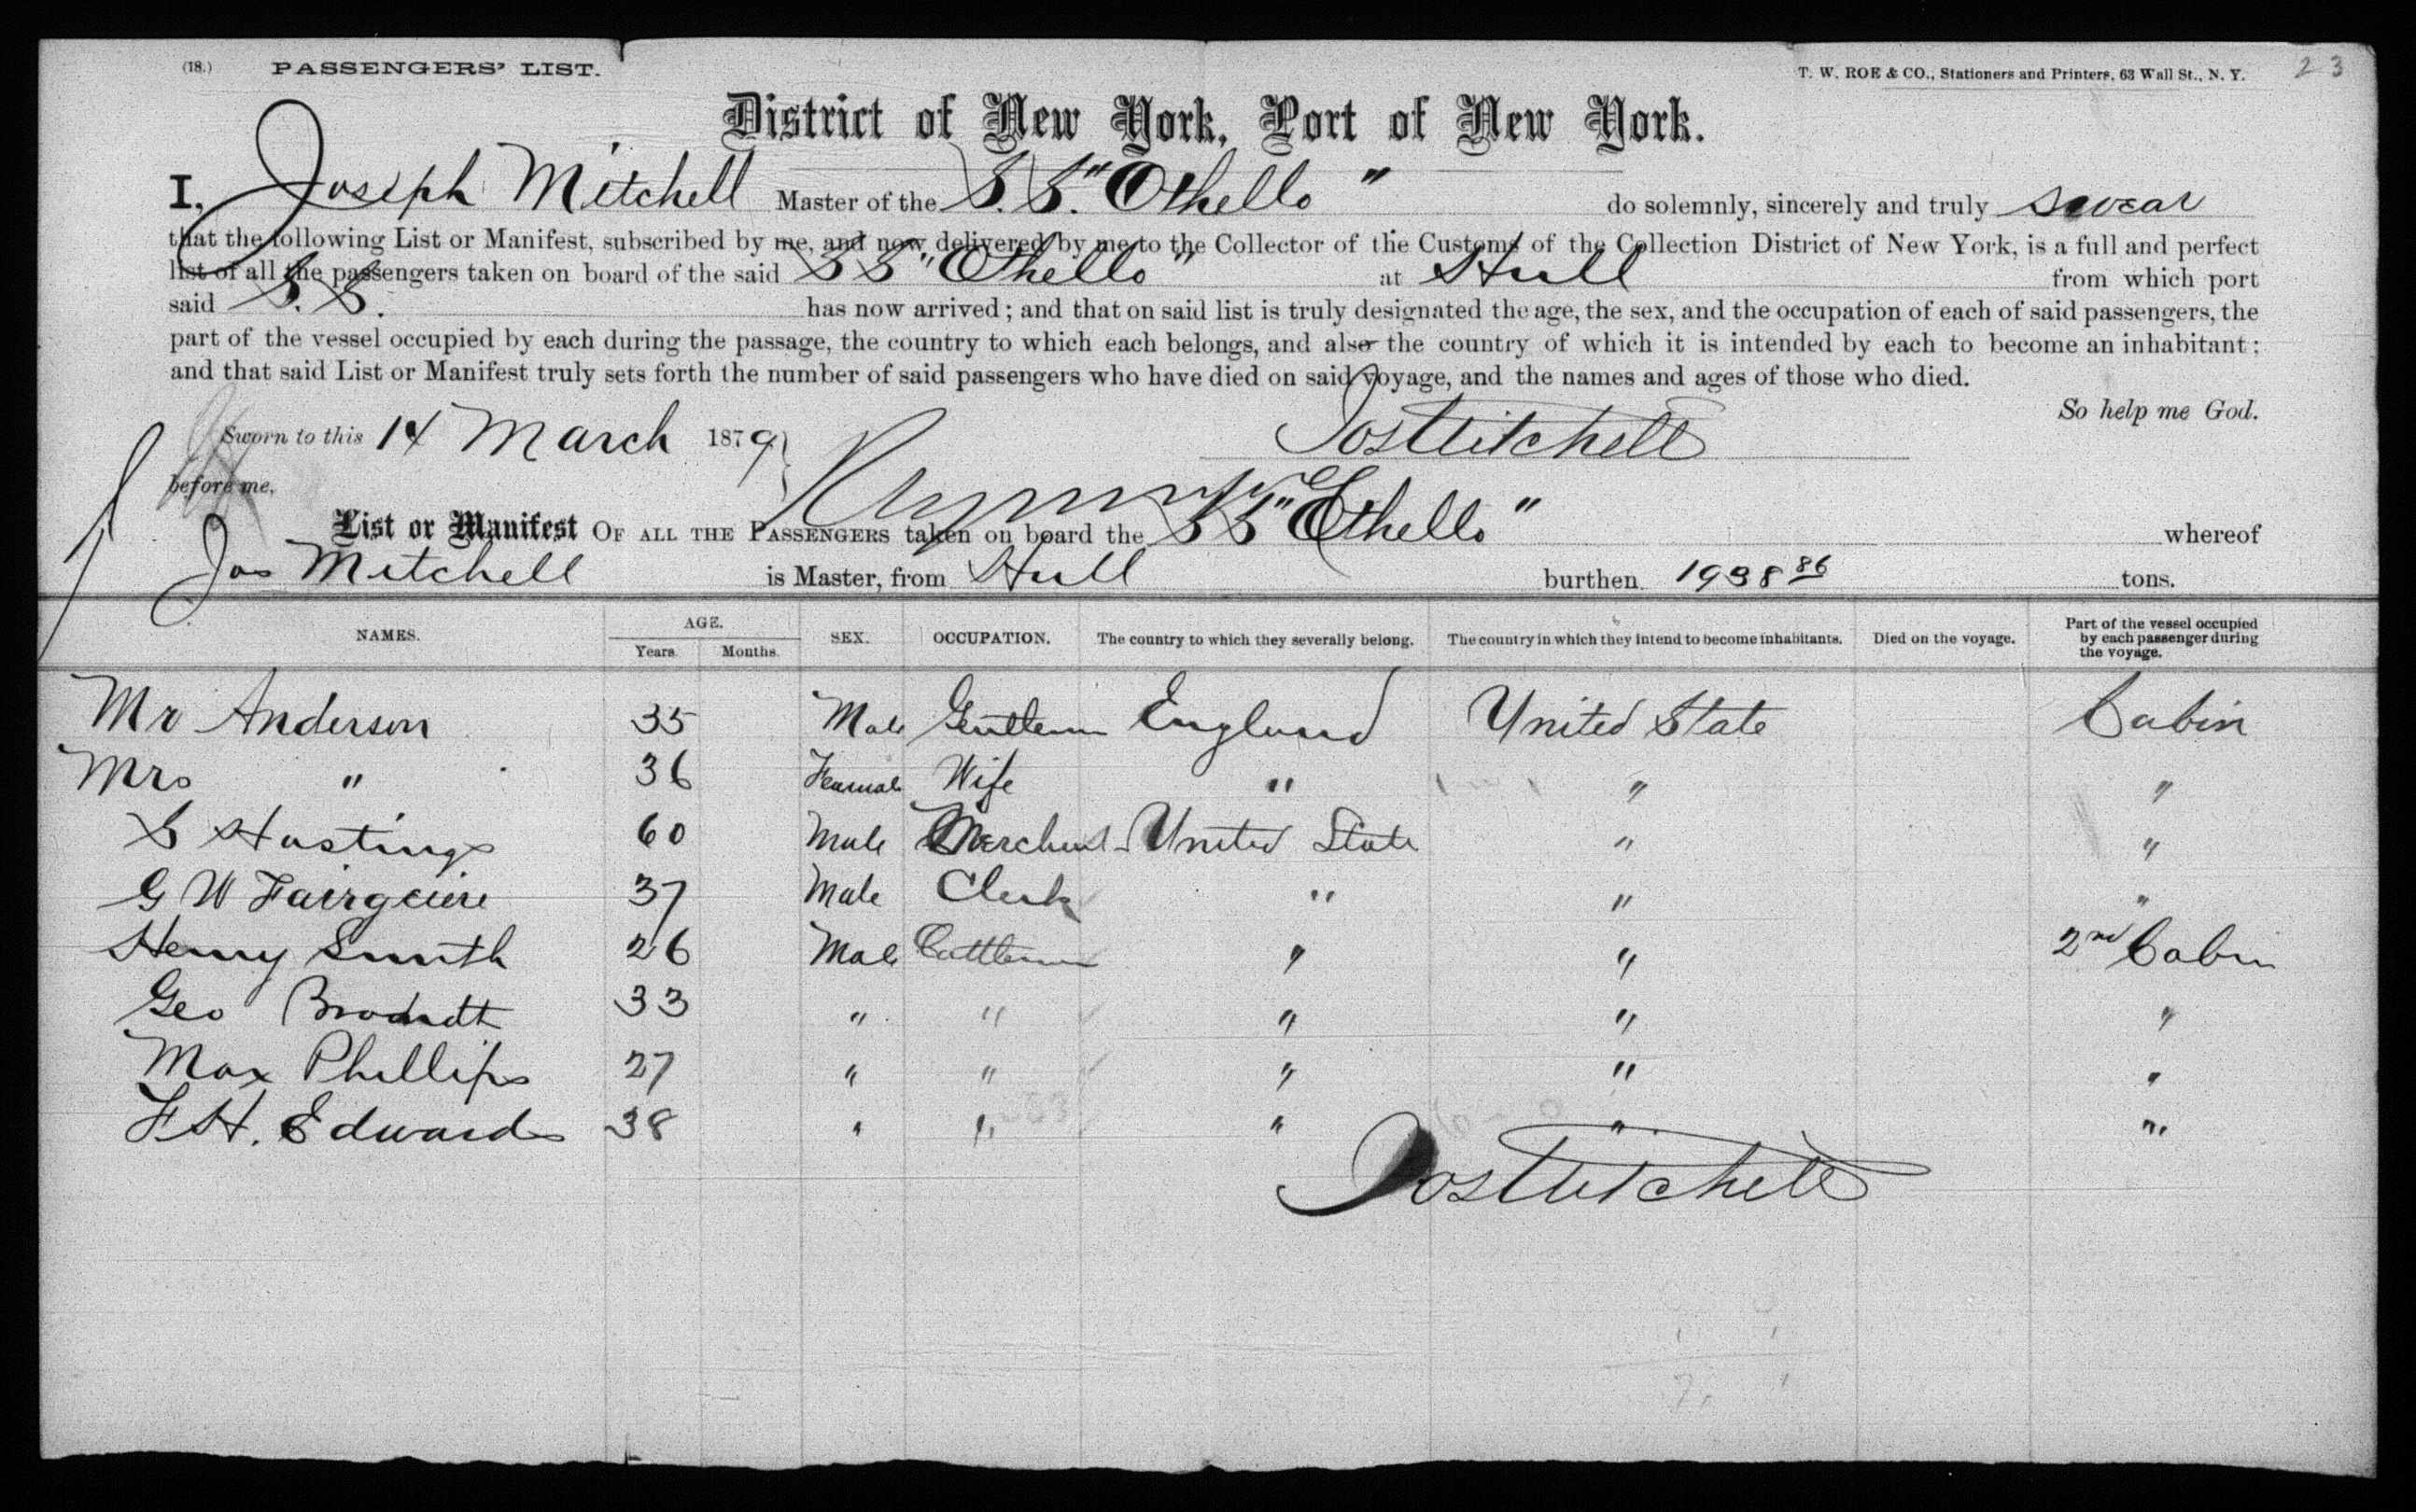 (18.) PASSENGERS' LIST. T. W. ROE & CO., Stationers and Printers, 63 Wall St., N. Y. 23
District of New York, Port of New York.
I, Joseph Mitchell Master of the S. S. "Othello" do solemnly, sincerely and truly swear
that the following List or Manifest, subscribed by me, and now delivered by me to the Collector of the Customs of the Collection District of New York, is a full and perfect
list of all the passengers taken on board of the said S S "Othello" at Hull from which port
said S. S. has now arrived; and that on said list is truly designated the age, the sex, and the occupation of each of said passengers, the
part of the vessel occupied by each during the passage, the country to which each belongs, and also the country of which it is intended by each to become an inhabitant;
and that said List or Manifest truly sets forth the number of said passengers who have died on said voyage, and the names and ages of those who died.
So help me God.
Sworn to this 14 March 1879 Jos Mitchell
before me,
List or Manifest OF ALL THE PASSENGERS taken on board the S S "Othello" whereof
Jos Mitchell is Master, from Hull burthen 1938 86 tons.
NAMES. AGE. Years. Months. SEX. OCCUPATION. The country to which they severally belong. The country in which they intend to become inhabitants. Died on the voyage. Part of the vessel occupied by each passenger during the voyage.
Mr Anderson 35 Male Gentleman England United State Cabin
Mrs " 36 Female Wife " " "
S Hastings 60 Male Merchant United State " "
G W 37 Male Clerk " " "
Henry Smith 26 Male Cattleman " " 2nd Cabin
Geo 33 " " " " "
Max Phillips 27 " " " " "
F H. Edwards 38 " " " " "
Jos Mitchell